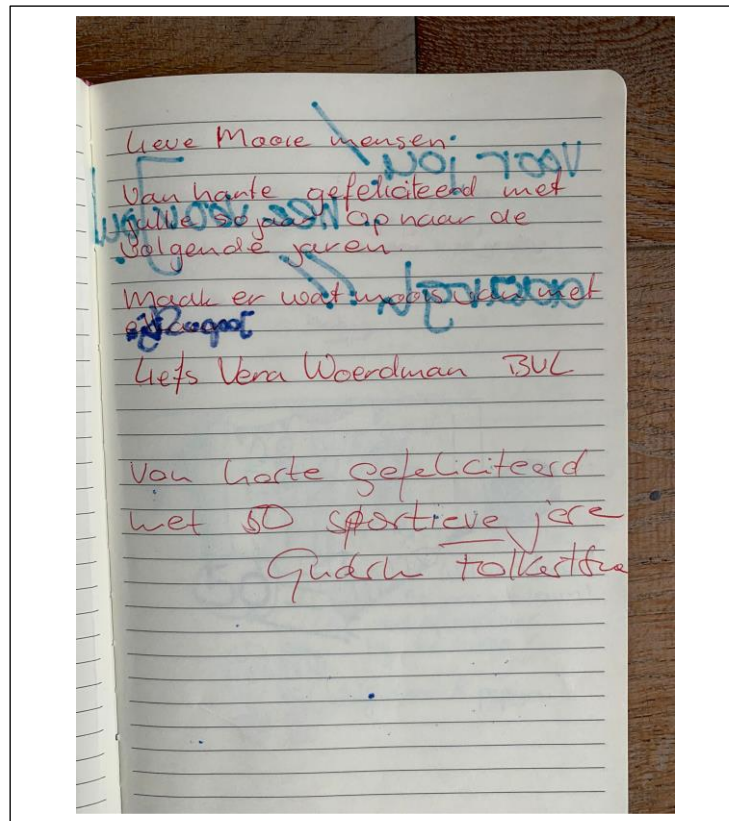 Lieve Mooie mensen.
Van harte gefeliciteerd met
jullie 50 jaar Op naar de
volgende jaren.
Maak er wat moois van met
Liefs Vera Woerdman BVL
Van harte gefeliciteerd
met 50 sportieve jere